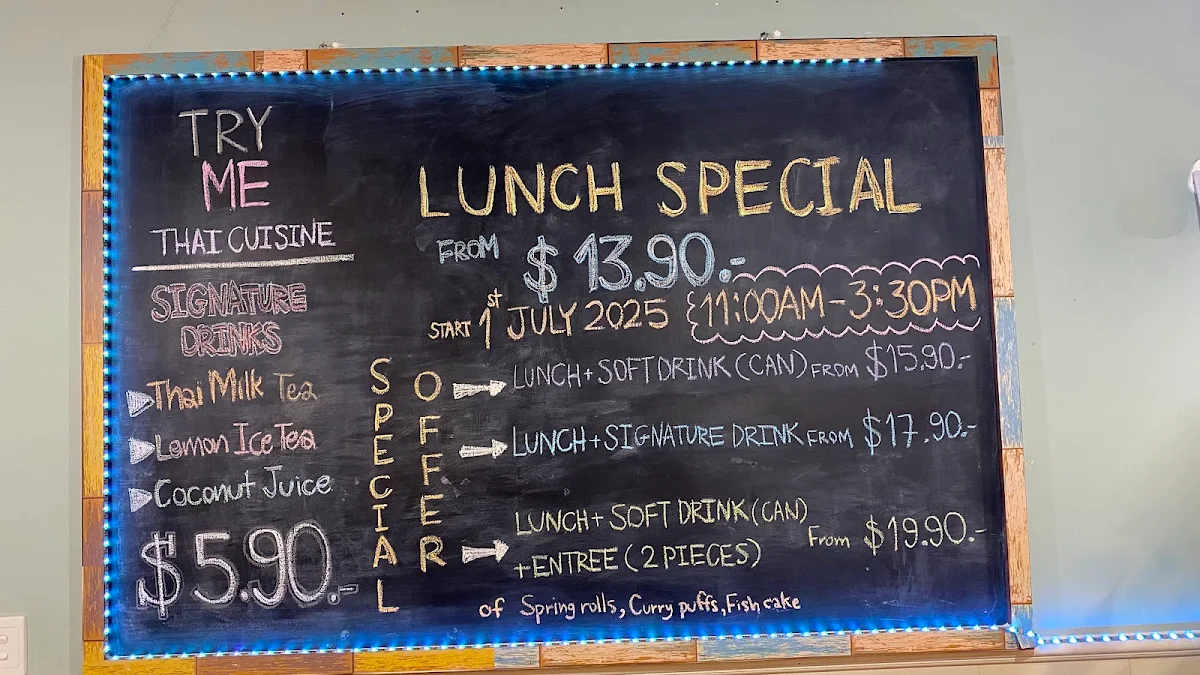 TRY
ME
THAI CUISINE
SIGNATURE
DRINKS
Thai Milk Tea
Lemon Ice Tea
Coconut Juice
$5.90.-
LUNCH SPECIAL
FROM $13.90.-
START 1st JULY 2025 11:00AM-3:30PM
SPECIAL
OFFER
LUNCH + SOFT DRINK (CAN) FROM $15.90.-
LUNCH + SIGNATURE DRINK FROM $17.90.-
LUNCH + SOFT DRINK (CAN)
+ENTREE (2 PIECES) From $19.90.-
of Spring rolls, Curry puffs, Fish cake